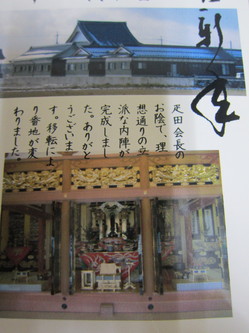 疋田会長の
お陰で、理
想通りの立
派な内陣が
完成しまし
た。ありがと
うございま
す。移転によ
り番地が変
わりました。